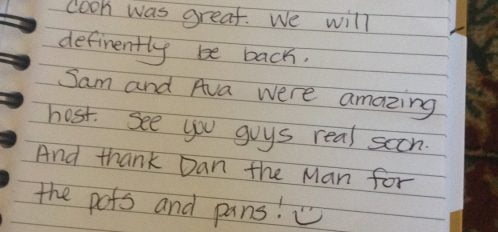 cook was great. We will
definently be back.
Sam and Ava were amazing
host. See you guys real soon.
And thank Dan the Man for
the pots and pans!